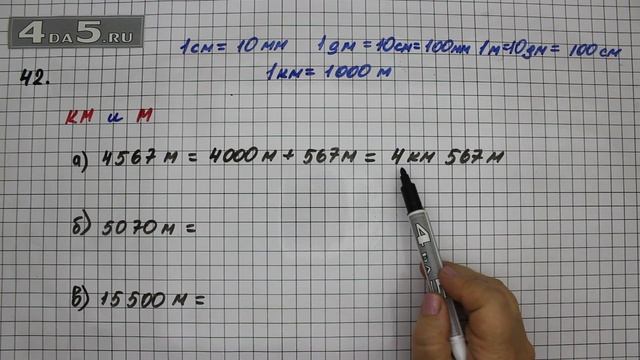 4DA5.RU
1см = 10мм 1дм = 10см = 100мм 1м = 10дм = 100см
42. 1км = 1000 м
км и м
а) 4567 м = 4000 м + 567 м = 4 км 567 м
б) 5070 м =
в) 15500 м =
4DA